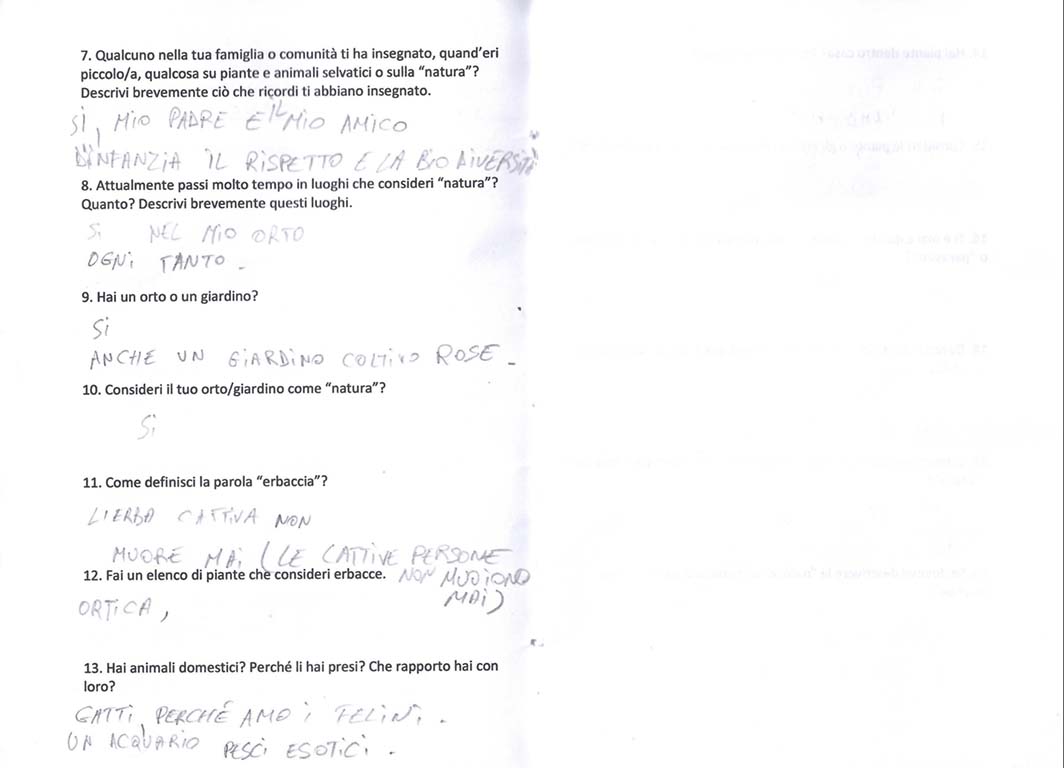 7. Qualcuno nella tua famiglia o comunità ti ha insegnato, quand'eri
piccolo/a, qualcosa su piante e animali selvatici o sulla “natura”?
Descrivi brevemente ciò che ricordi ti abbiano insegnato.
SÌ, MIO PADRE E IL MIO AMICO
D'INFANZIA IL RISPETTO E LA BIODIVERSITÀ
8. Attualmente passi molto tempo in luoghi che consideri “natura”?
Quanto? Descrivi brevemente questi luoghi.
Si NEL MIO ORTO
OGNI TANTO.
9. Hai un orto o un giardino?
Si
ANCHE UN GIARDINO COLTIVO ROSE.
10. Consideri il tuo orto/giardino come “natura”?
Si
11. Come definisci la parola “erbaccia”?
L'ERBA CATTIVA NON
MUORE MAI (LE CATTIVE PERSONE
12. Fai un elenco di piante che consideri erbacce. NON MUOIONO
MAI)
ORTICA,
13. Hai animali domestici? Perché li hai presi? Che rapporto hai con
loro?
GATTI, PERCHÉ AMO I FELINI.
UN ACQUARIO PESCI ESOTICI.